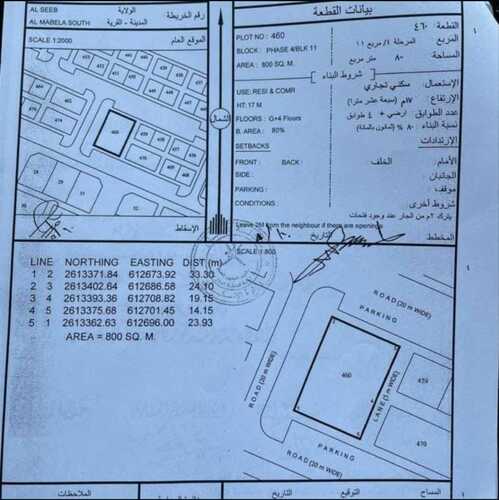 AL SEEB
الولاية
AL MABELA SOUTH
المدينة - القرية
رقم الخريطة
SCALE 1:2000
الموقع العام
460
459
الإسقاط
الشمال
بيانات القطعة
PLOT NO : 460
القطعة : ٤٦٠
BLOCK : PHASE 4/BLK 11
المربع
المرحلة ٤/ مربع ١١
AREA : 800 SQ. M.
المساحة
٨٠٠ متر مربع
شروط البناء
USE: RESI & COMR
الإستعمال: سكني تجاري
HT: 17 M
الإرتفاع: ١٧م (سبعة عشر مترا)
FLOORS : G+4 Floors
عدد الطوابق ارضي + ٤ طوابق
B. AREA : 80%
نسبة البناء ٨٠ % (ثمانون بالمائة)
SETBACKS
الإرتدادات
FRONT : BACK:
الأمام: الخلف:
SIDE :
الجانبان:
PARKING :
موقف:
CONDITIONS :
شروط اخرى:
يترك ٢م من الجار عند وجود فتحات
Leave 2M from the neighbour if there are openings
المخطط
التاريخ
LINE NORTHING EASTING DIST (m)
1 2 2613371.84 612673.92 33.30
2 3 2613402.64 612686.58 24.10
3 4 2613393.36 612708.82 19.15
4 5 2613375.68 612701.45 14.15
5 1 2613362.63 612696.00 23.93
AREA = 800 SQ. M.
SCALE 1:800
ROAD (20 m WIDE)
PARKING
ROAD (20 m WIDE)
460
459
LANE (5 m WIDE)
470
PARKING
ROAD (20 m WIDE)
الملاحظات
التاريخ
التوقيع
المساح